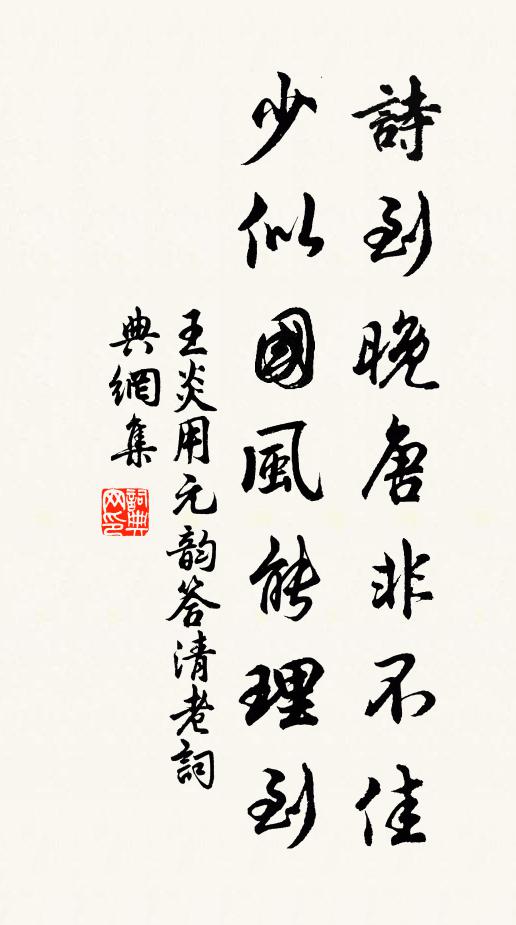 詩到晚唐非不佳
少似國風能理到
王炎用元韵答清老詞
典網集
詞典網印